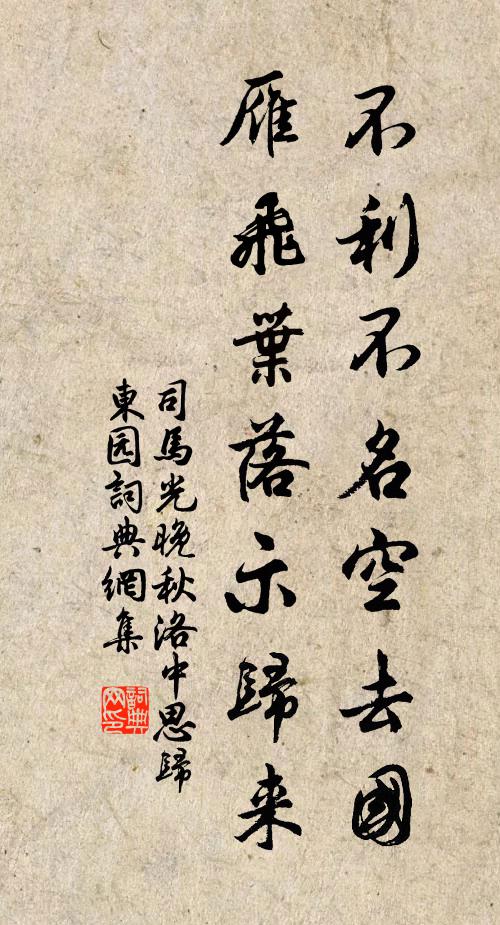 不利不名空去國
雁飛葉落示歸来
司馬光晚秋洛中思歸
東园詞典網集
詞典网印